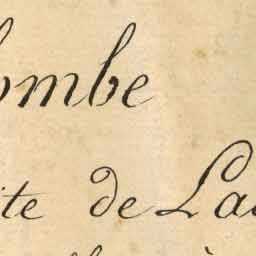 ombe
ite de La